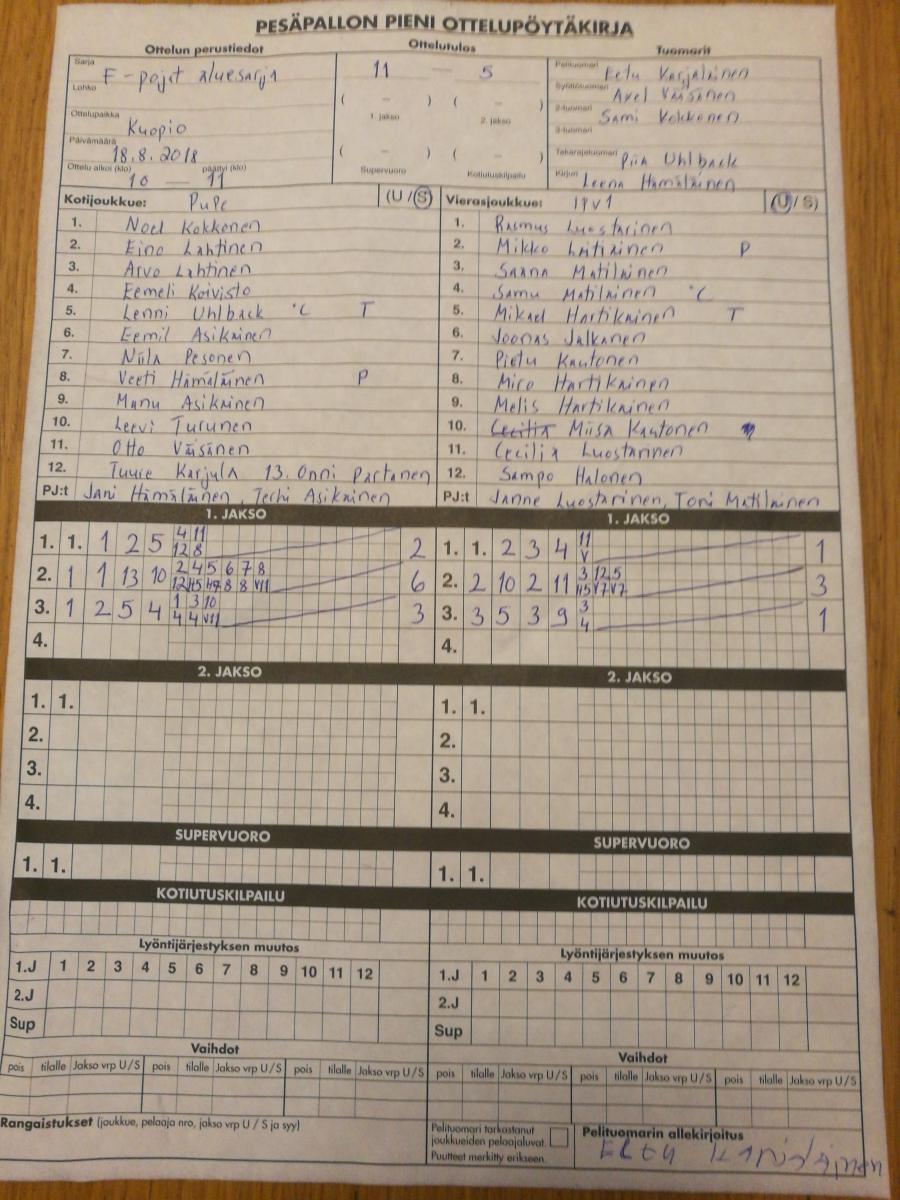 PESÄPALLON PIENI OTTELUPÖYTÄKIRJA
Ottelun perustiedot
Ottelutulos
Tuomarit
Sarja F-pojat aluesarja
Lohko
Ottelupaikka Kuopio
Päivämäärä 18.8.2018
Ottelu alkoi (klo) päättyi (klo)
10 — 11
11 — 5
( – ) ( – )
1. jakso 2. jakso
( – ) ( – )
Supervuoro Kotiutuskilpailu
Pelituomari Eetu Karjalainen
Syöttötuomari Axel Väisänen
2-tuomari Sami Kokkonen
3-tuomari
Takarajatuomari Piia Uhlback
Kirjuri Leena Hämäläinen
Kotijoukkue: PuPe (U / S)
1. Noel Kokkonen
2. Eino Lahtinen
3. Arvo Lahtinen
4. Eemeli Koivisto
5. Lenni Uhlback C T
6. Eemil Asikainen
7. Niila Pesonen
8. Veeti Hämäläinen P
9. Manu Asikainen
10. Leevi Turunen
11. Otto Väisänen
12. Tuure Karjula 13. Onni Partanen
PJ:t Jani Hämäläinen, Terhi Asikainen
Vierasjoukkue: IPV1 (U / S)
1. Rasmus Luostarinen
2. Mikko P
3. Saana Matilainen
4. Samu Matilainen C
5. Mikael Hartikainen T
6. Joonas Jalkanen
7. Pietu Kautonen
8. Miro Hartikainen
9. Melis Hartikainen
10. Cecilia Miisa Kautonen
11. Cecilia Luostarinen
12. Sampo Halonen
PJ:t Janne Luostarinen, Toni Matilainen
1. JAKSO
1. 1. 1 2 5 4 11 2
12 8
2. 1 1 13 10 2 4 5 6 7 8 6
3. 1 2 5 4 1 3 10 3
4 4 V11
4.
1. JAKSO
1. 1. 2 3 4 11 1
V
2. 2 10 2 11 3 12 5 3
3. 3 5 3 9 3 1
4
4.
2. JAKSO
1. 1.
2.
3.
4.
2. JAKSO
1. 1.
2.
3.
4.
SUPERVUORO
1. 1.
SUPERVUORO
1. 1.
KOTIUTUSKILPAILU
KOTIUTUSKILPAILU
Lyöntijärjestyksen muutos
1.J 1 2 3 4 5 6 7 8 9 10 11 12
2.J
Sup
Lyöntijärjestyksen muutos
1.J 1 2 3 4 5 6 7 8 9 10 11 12
2.J
Sup
Vaihdot
pois tilalle Jakso vrp U / S pois tilalle Jakso vrp U / S pois tilalle Jakso vrp U / S
Vaihdot
pois tilalle Jakso vrp U / S pois tilalle Jakso vrp U / S pois tilalle Jakso vrp U / S
Rangaistukset (joukkue, pelaaja nro, jakso vrp U / S ja syy)
Pelituomari tarkastanut
joukkueiden pelaajaluvat.
Puutteet merkitty erikseen.
Pelituomarin allekirjoitus
Eetu Karjalainen